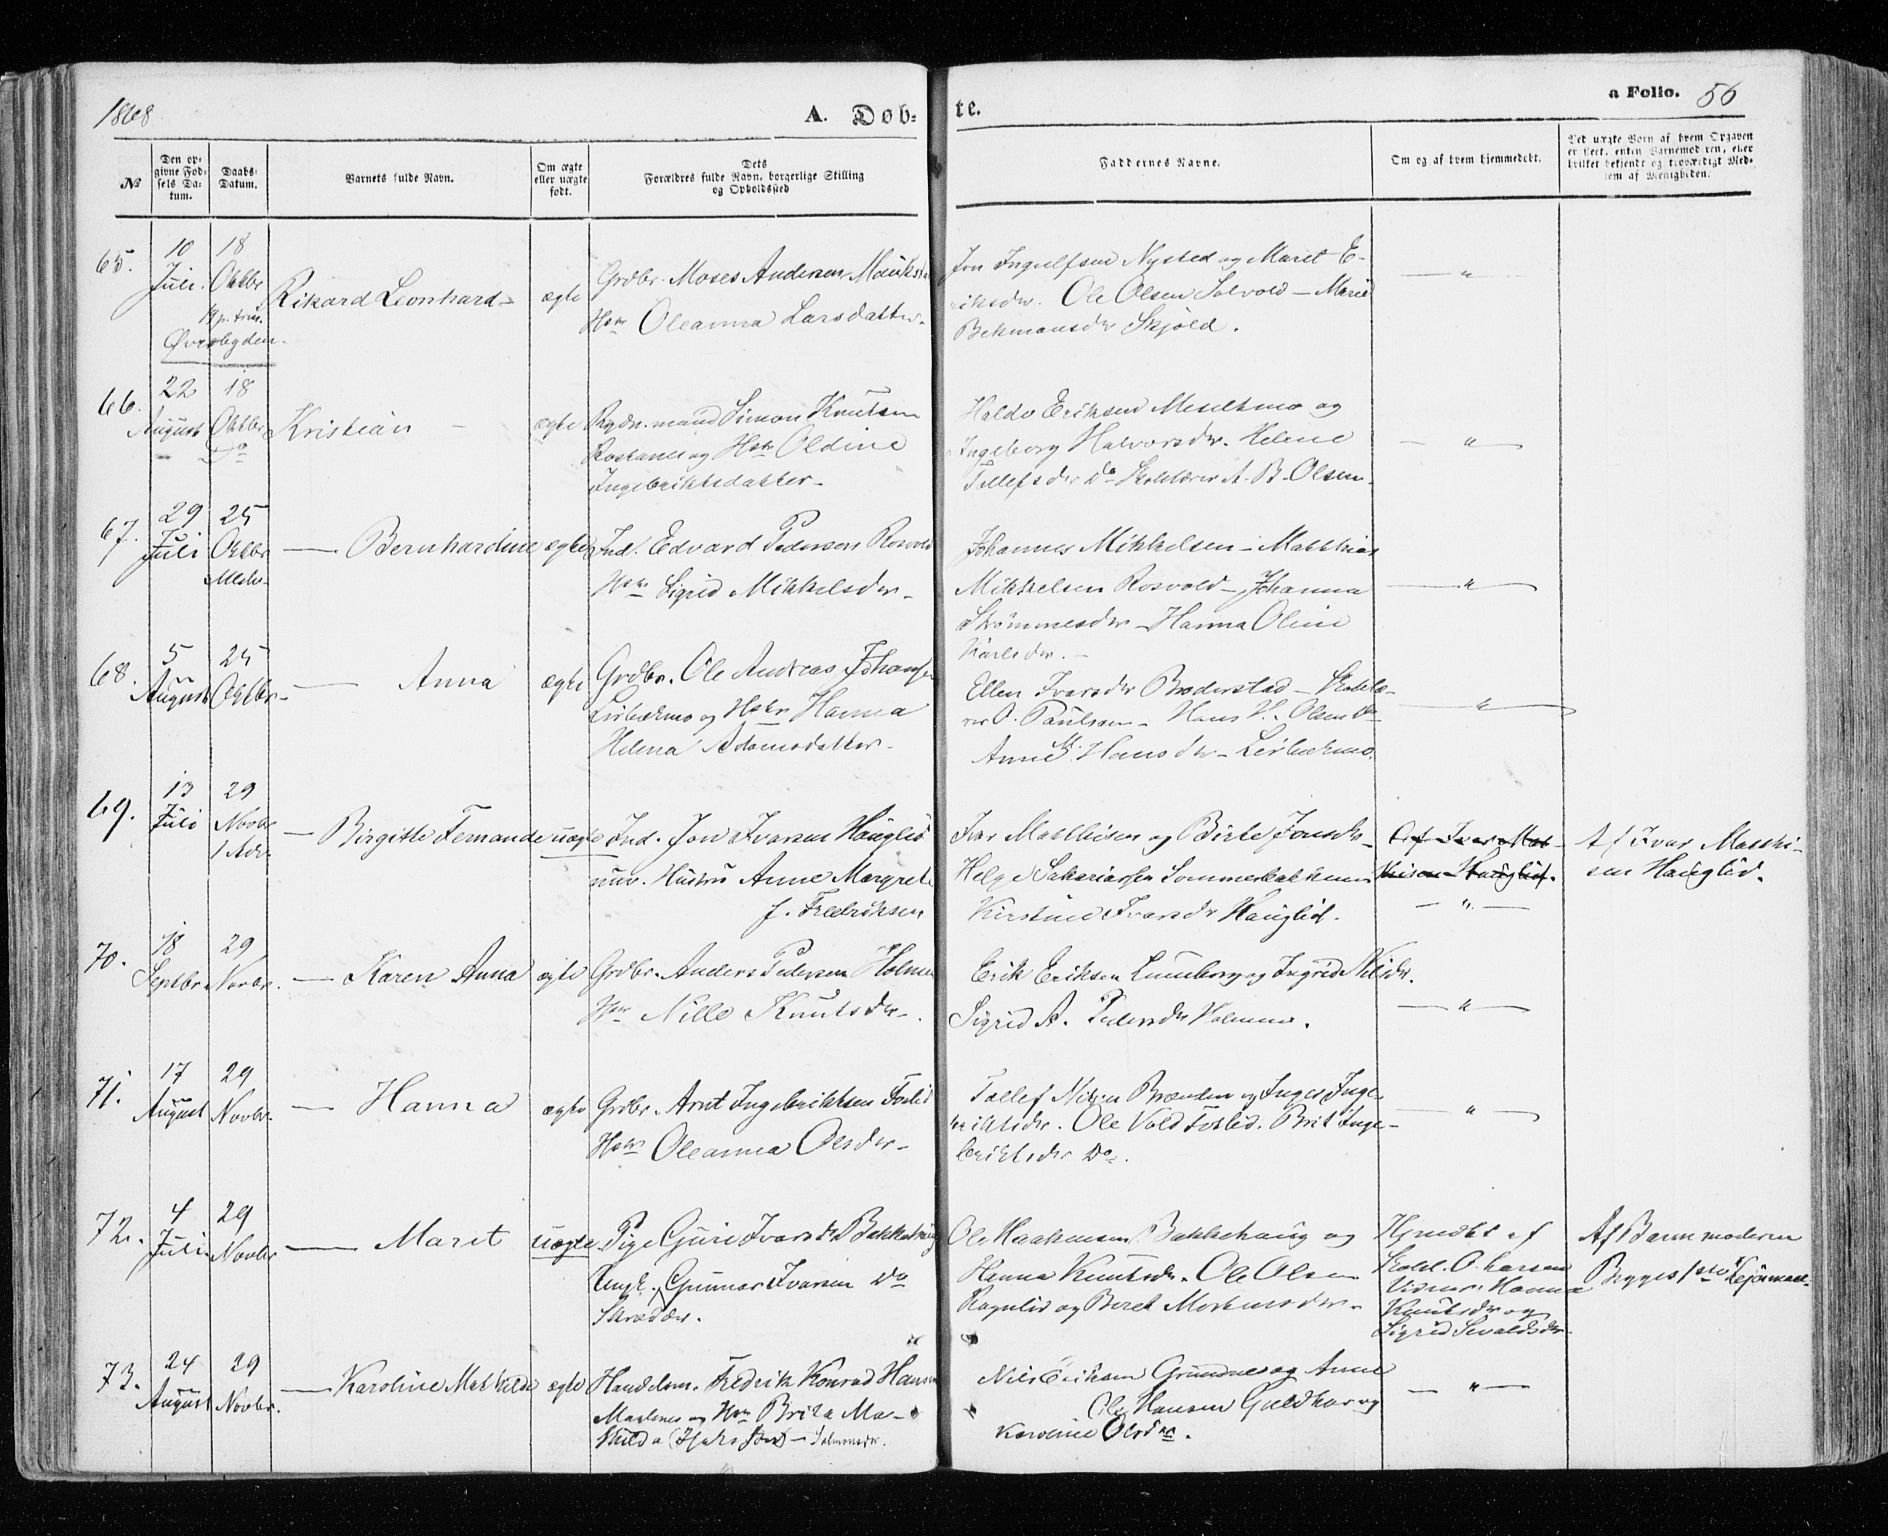 1868
A. Døb-
te.
a Folio. 56
No
Den op-
givne Fød-
sels Da-
tum.
Daabs-
Datum.
Barnets fulde Navn.
Om ægte
eller uægte
født.
Dets
Forældres fulde Navn, borgerlige Stilling
og Opholdssted
Faddernes Navne.
Om og af hvem hjemmedøbt.
Ved uægte Børn af hvem Opgaven
er skeet, enten Barnemoderen, eller
hvilket bekjendt og troværdigt Med-
lem af Menigheden.
65.
10
Juli.
18
Oktbr
Øverbygden.
Rikard Leonhard
ægte
Grdbr. Moses Andersen
Hstr Oleanna Larsdatter.
Jon Ingulfsen Nysted og Maret E-
riksdr. Ole Olsen Solvold — Marie
Bekmansdr Skjold.
— " —
66.
22
August
18
Oktbr
Do
Kristian
ægte
Rydn.mand Simon Knutsen
og Hstr Oldine
Ingebriktsdatter
Haldo Eriksen og
Ingeborg Halvorsdr. Helene
Tollefsdr Do A. B. Olsen.
— " —
67.
29
Juli
25
Oktbr
— Bernhardine
ægte
Ind. Edvard Pedersen Rosvold
Hstr Sigrid Mikkelsdr
Johannes Mikkelsen — Matthias
Mikkelsen Rosvold — Johanna
Hanna Oline
Karlsdr. —
— " —
68.
5
August
25
Oktbr
— Anna
ægte
Grdbr. Ole Andreas Johansen
og Hstr Hanna
Helena Adamsdatter
Ellen Ivarsdr Brøderstad — Skolelæ-
rer P. Paulssen — Hans H. Olsen Do
Anne M. Hansdr
— " —
69.
13
Juli
29
Novbr
— Birgitte Fernande
uægte
Ind. Jon Ivarsen Hauglid
Hustru Anne Margrete
f. Fredriksen
Ivar Matthisen og Birte Jonsdr
Helge Sakariassen
Kirstine Ivarsdr Hauglid.
Af Ivar Mat-
thisen Hauglid.
— " —
Af Ivar Matthi-
sen Hauglid.
70.
18
Septbr
29
Novbr.
— Karen Anna
ægte
Grdbr. Anders Pedersen Holmen
Hstr Nille Knutsdr
Erik Eriksen og Ingrid Nilsdr.
Sigrid A. Pedersdr Holmen.
— " —
71.
17
August
29
Novbr
— Hanna
ægte
Grdbr. Arnt Ingebriktsen Foslid
Hstr Oleanna Olsdr
Tollef Nilsen Brænden og Inger Inge-
briktsdr. Ole Vold Foslid. Brit Inge-
briktsdr Do.
— " —
72.
4
Juli
29
Novbr
— Maret
uægte
Pige Guri Ivarsdr Bakkehaug
Ungk. Gunnar Ivarsen Do
Ole Haakensen Bakkehaug og
Hanna Knutsdr. Ole Olsen
Rognlid og Beret Mortensdr
Hjmdbt af
Skolel. O. Larsen
Hanna
Knutsdr og
Sigrid Sevaldsdr
Af Barnemoderen
Begges 1ste Lejermaal.
73.
24
August
29
Novbr.
— Karoline Mathilde
ægte
Handelsm. Fredrik Konrad Hansen
og Hstr Brita Ma-
thilde
Nils Eriksen Grundnes og Anne
Ole Hansen Guldhav og
Karoline Olsdr.
— " —